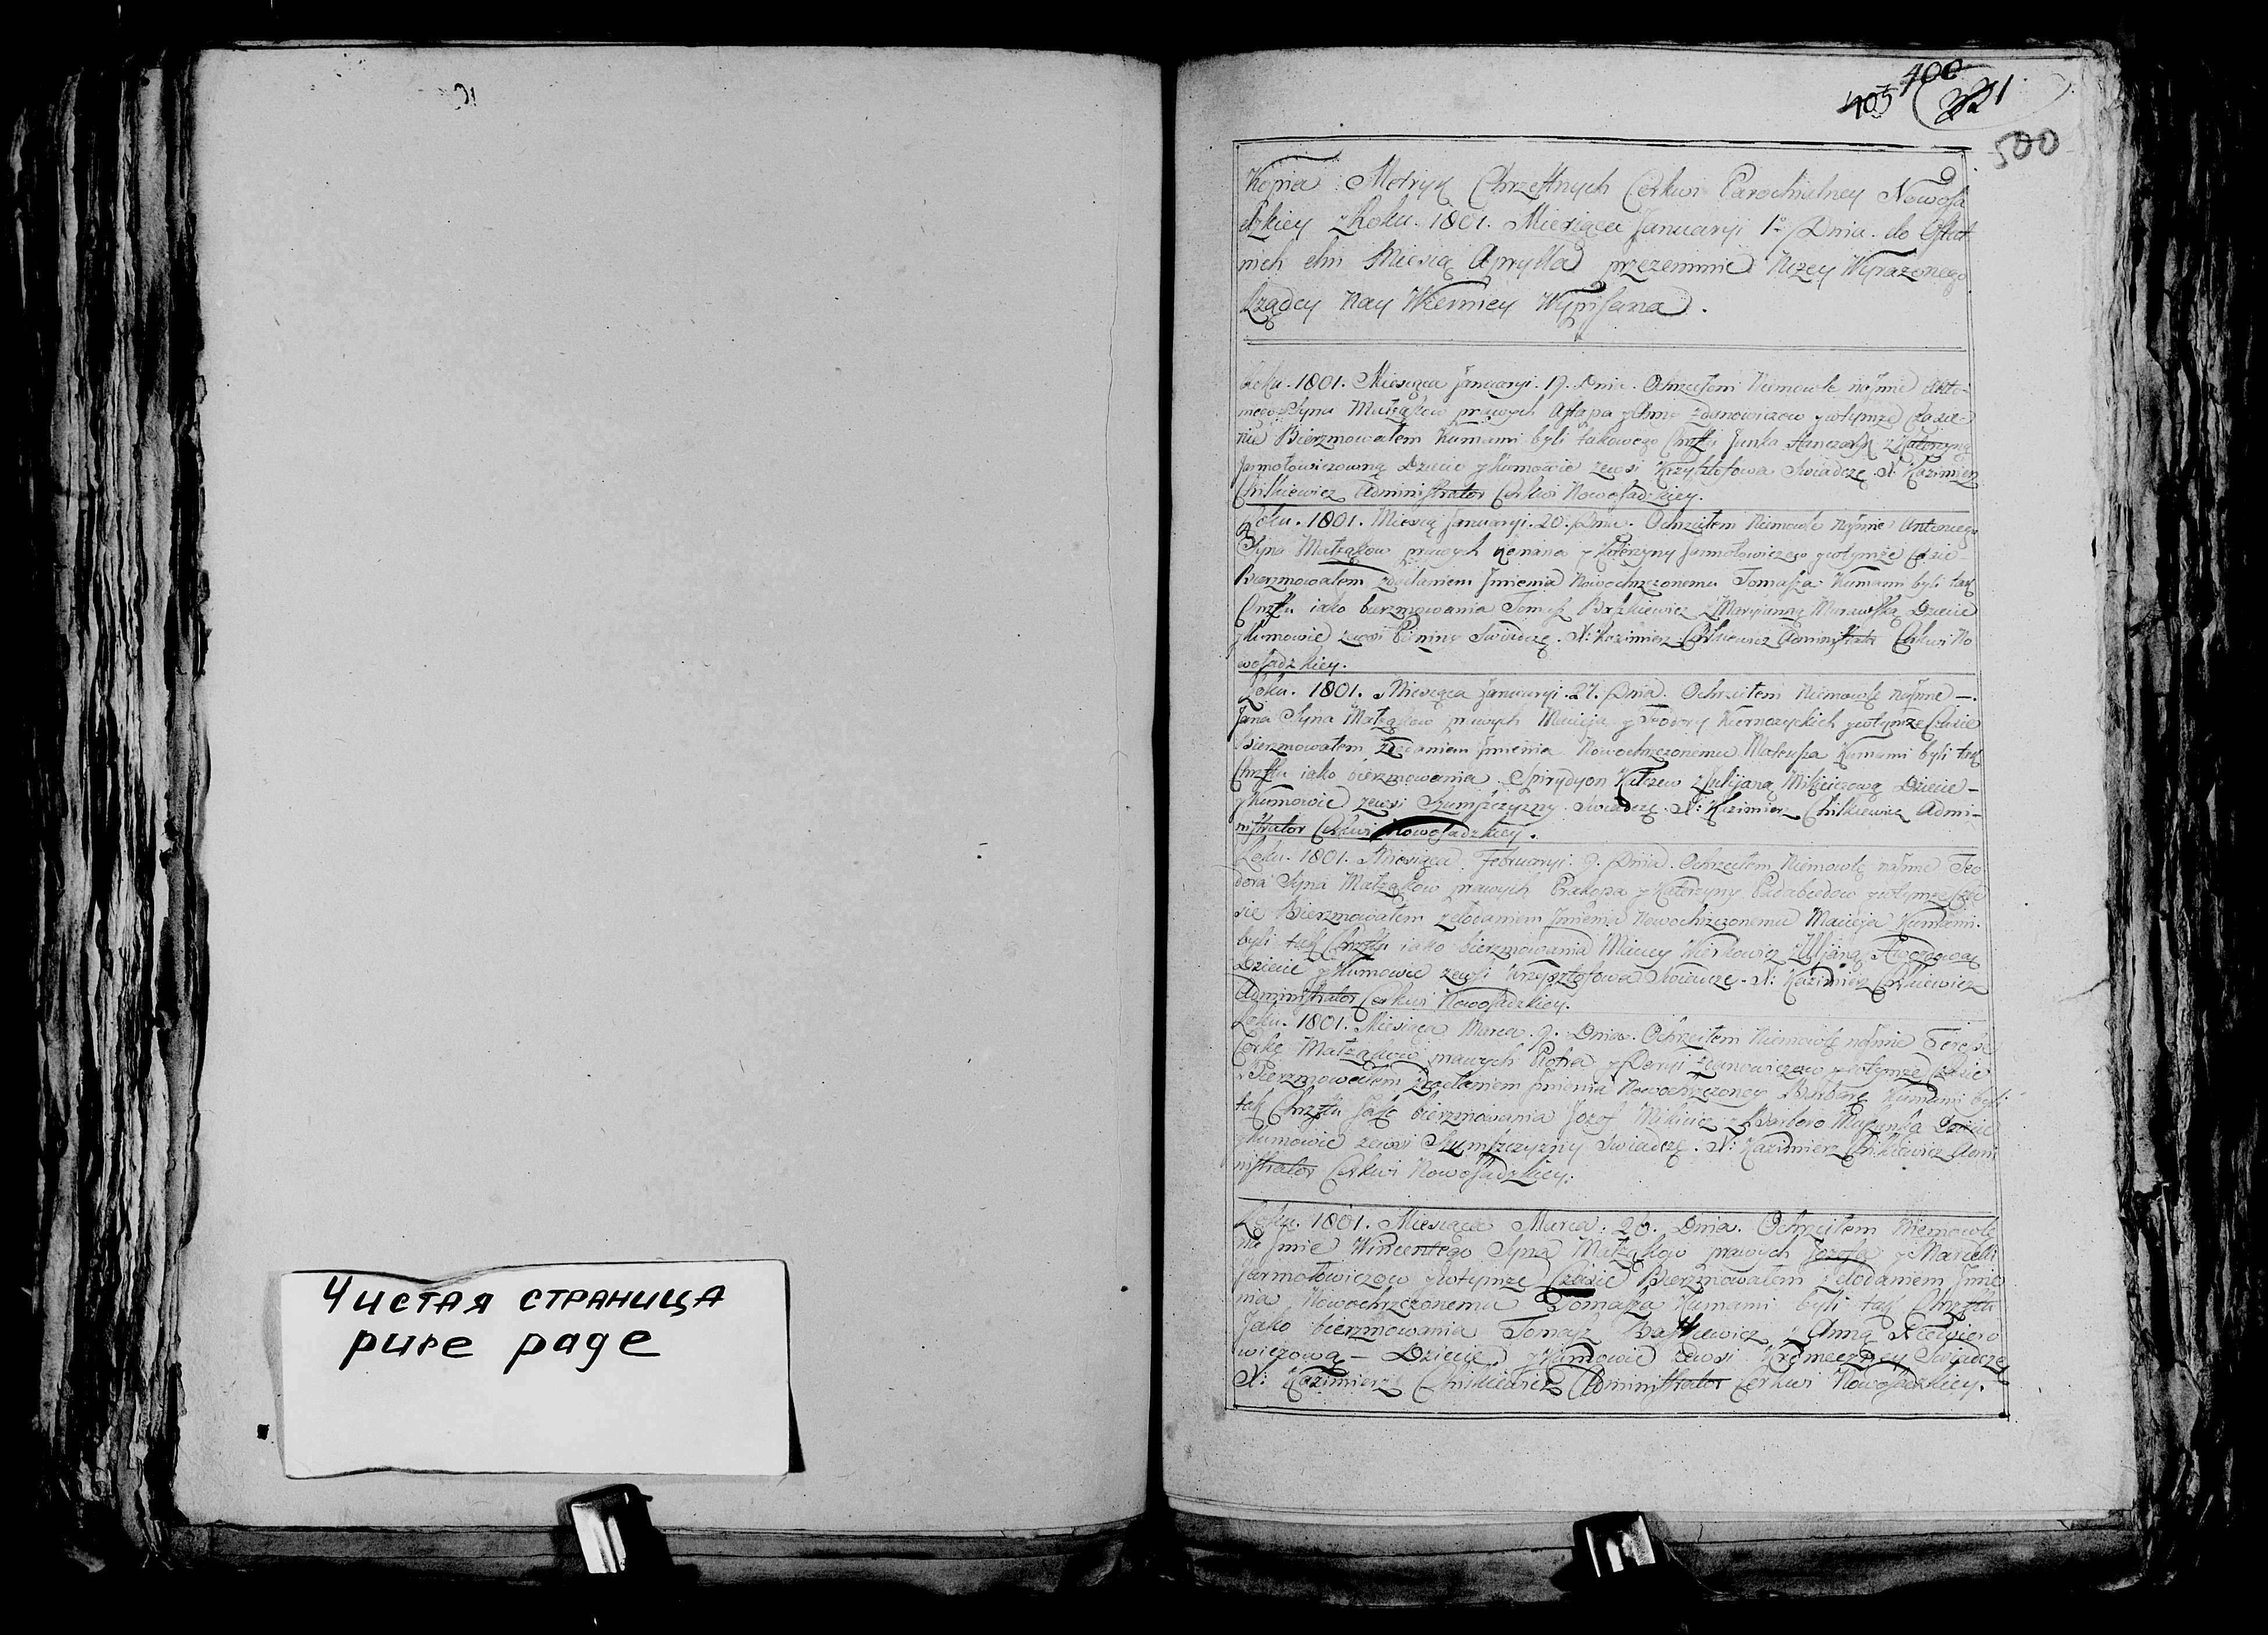 Чистая страница
pure page
406
405
221
500
Kopia Metryk Chrzestnych Cerkwi Parochialney Nowosa
dzkiey z Roku. 1801. Miesiąca Januaryi 1º Dnia. do Ostat
nich dni Miesią Aprylla przezemnie Niżey Wyrażonego
Rządcy Nay Wierniey Wypisana.
Roku. 1801. Miesiąca Januaryi. 19. Dnia. Ochrzciłem Niemowle na Jmie
Syna Małżąkow prawych y Anny Zdanowiczow y wtymże Czasie
Bierzmowałem Kumami byli takowego Chrztu Janka z Katerzyną
Jarmołowiczowną Dziecie y Kumowie zewsi Krzysztofowa Swiadczę X: Kazimierz
Chilkiewicz Administrator Cerkwi Nowosadzkiey.
Roku. 1801. Miesią Januaryi. 20. Dnia. Ochrzciłem Niemowle na Jmie Antoniego
Syna Małżąkow prawych y Katerzyny Jarmołowiczow y wtymże Czasie
Bierzmowałem zdodaniem Jmienia Nowochrzczonemu Tomasza Kumami byli tak
Chrztu iako bierzmowania Tomasz z Maryanną Murawską Dziecie
y Kumowie zewsi Swiadczę. X: Kazimierz Chilkiewicz Administrator Cerkwi No
wosadzkiey.
Roku. 1801. Miesiąca Januaryi. 27. Dnia. Ochrzciłem Niemowlę na Jmie —.
Jana Syna Małżąkow prawych Macieja y Teodory y wtymże Czasie
Bierzmowałem Zdodaniem Jmienia Nowochrzczonemu Mateusza Kumami byli tak
Chrztu iako bierzmowania Spirydyon z Julijaną Mikiciczową Dziecie —
y Kumowie zewsi Szumszczyzny Swiadczę. X: Kazimierz Chilkiewicz Admi—
nistrator Cerkwi Nowosadzkiey.
Roku. 1801. Miesiąca Februaryi. 9. Dnia. Ochrzciłem Niemowlę na Jmie Teo
dora Syna Małżąkow prawych Prakopa y Katerzyny y wtymże Cza
sie Bierzmowałem zdodaniem Jmienia Nowochrzczonemu Macieja Kumami.
byli tak Chrztu iako bierzmowania Maciey z Uljaną
Dziecie y Kumowie zewsi Krzysztofowa Swiadczę. X: Kazimierz Chilkiewicz
Administrator Cerkwi Nowosadzkiey.
Roku. 1801. Miesiąca Marca. 9. Dnia. Ochrzciłem Niemowlę na Jmie Teresę
Corkę Małżąkow prawych Piotra y Zdanowiczow y wtymże Czasie
Bierzmowałem Zdodaniem Jmienia Nowochrzczoney Barbarę Kumami byli
tak Chrztu Jako bierzmowania Jozef Mikicicz z Dziecie
y Kumowie zewsi Szumszczyzny Swiadczę. X: Kazimierz Chilkiewicz Admi
nistrator Cerkwi Nowosadzkiey.
Roku. 1801. Miesiąca Marca. 26. Dnia. Ochrzciłem Niemowlę
na Jmie Wincentego Syna Małżąkow prawych Jozefa y
Jarmołowiczow y wtymże Czasie Bierzmowałem Zdodaniem Jmie
nia Nowochrzczonemu Tomasza Kumami byli tak Chrztu
Jako bierzmowania Tomasz z Anną
wiczową — Dziecie y Kumowie zewsi Swiadczę
X: Kazimierz Chilkiewicz Administrator Cerkwi Nowosadzkiey.